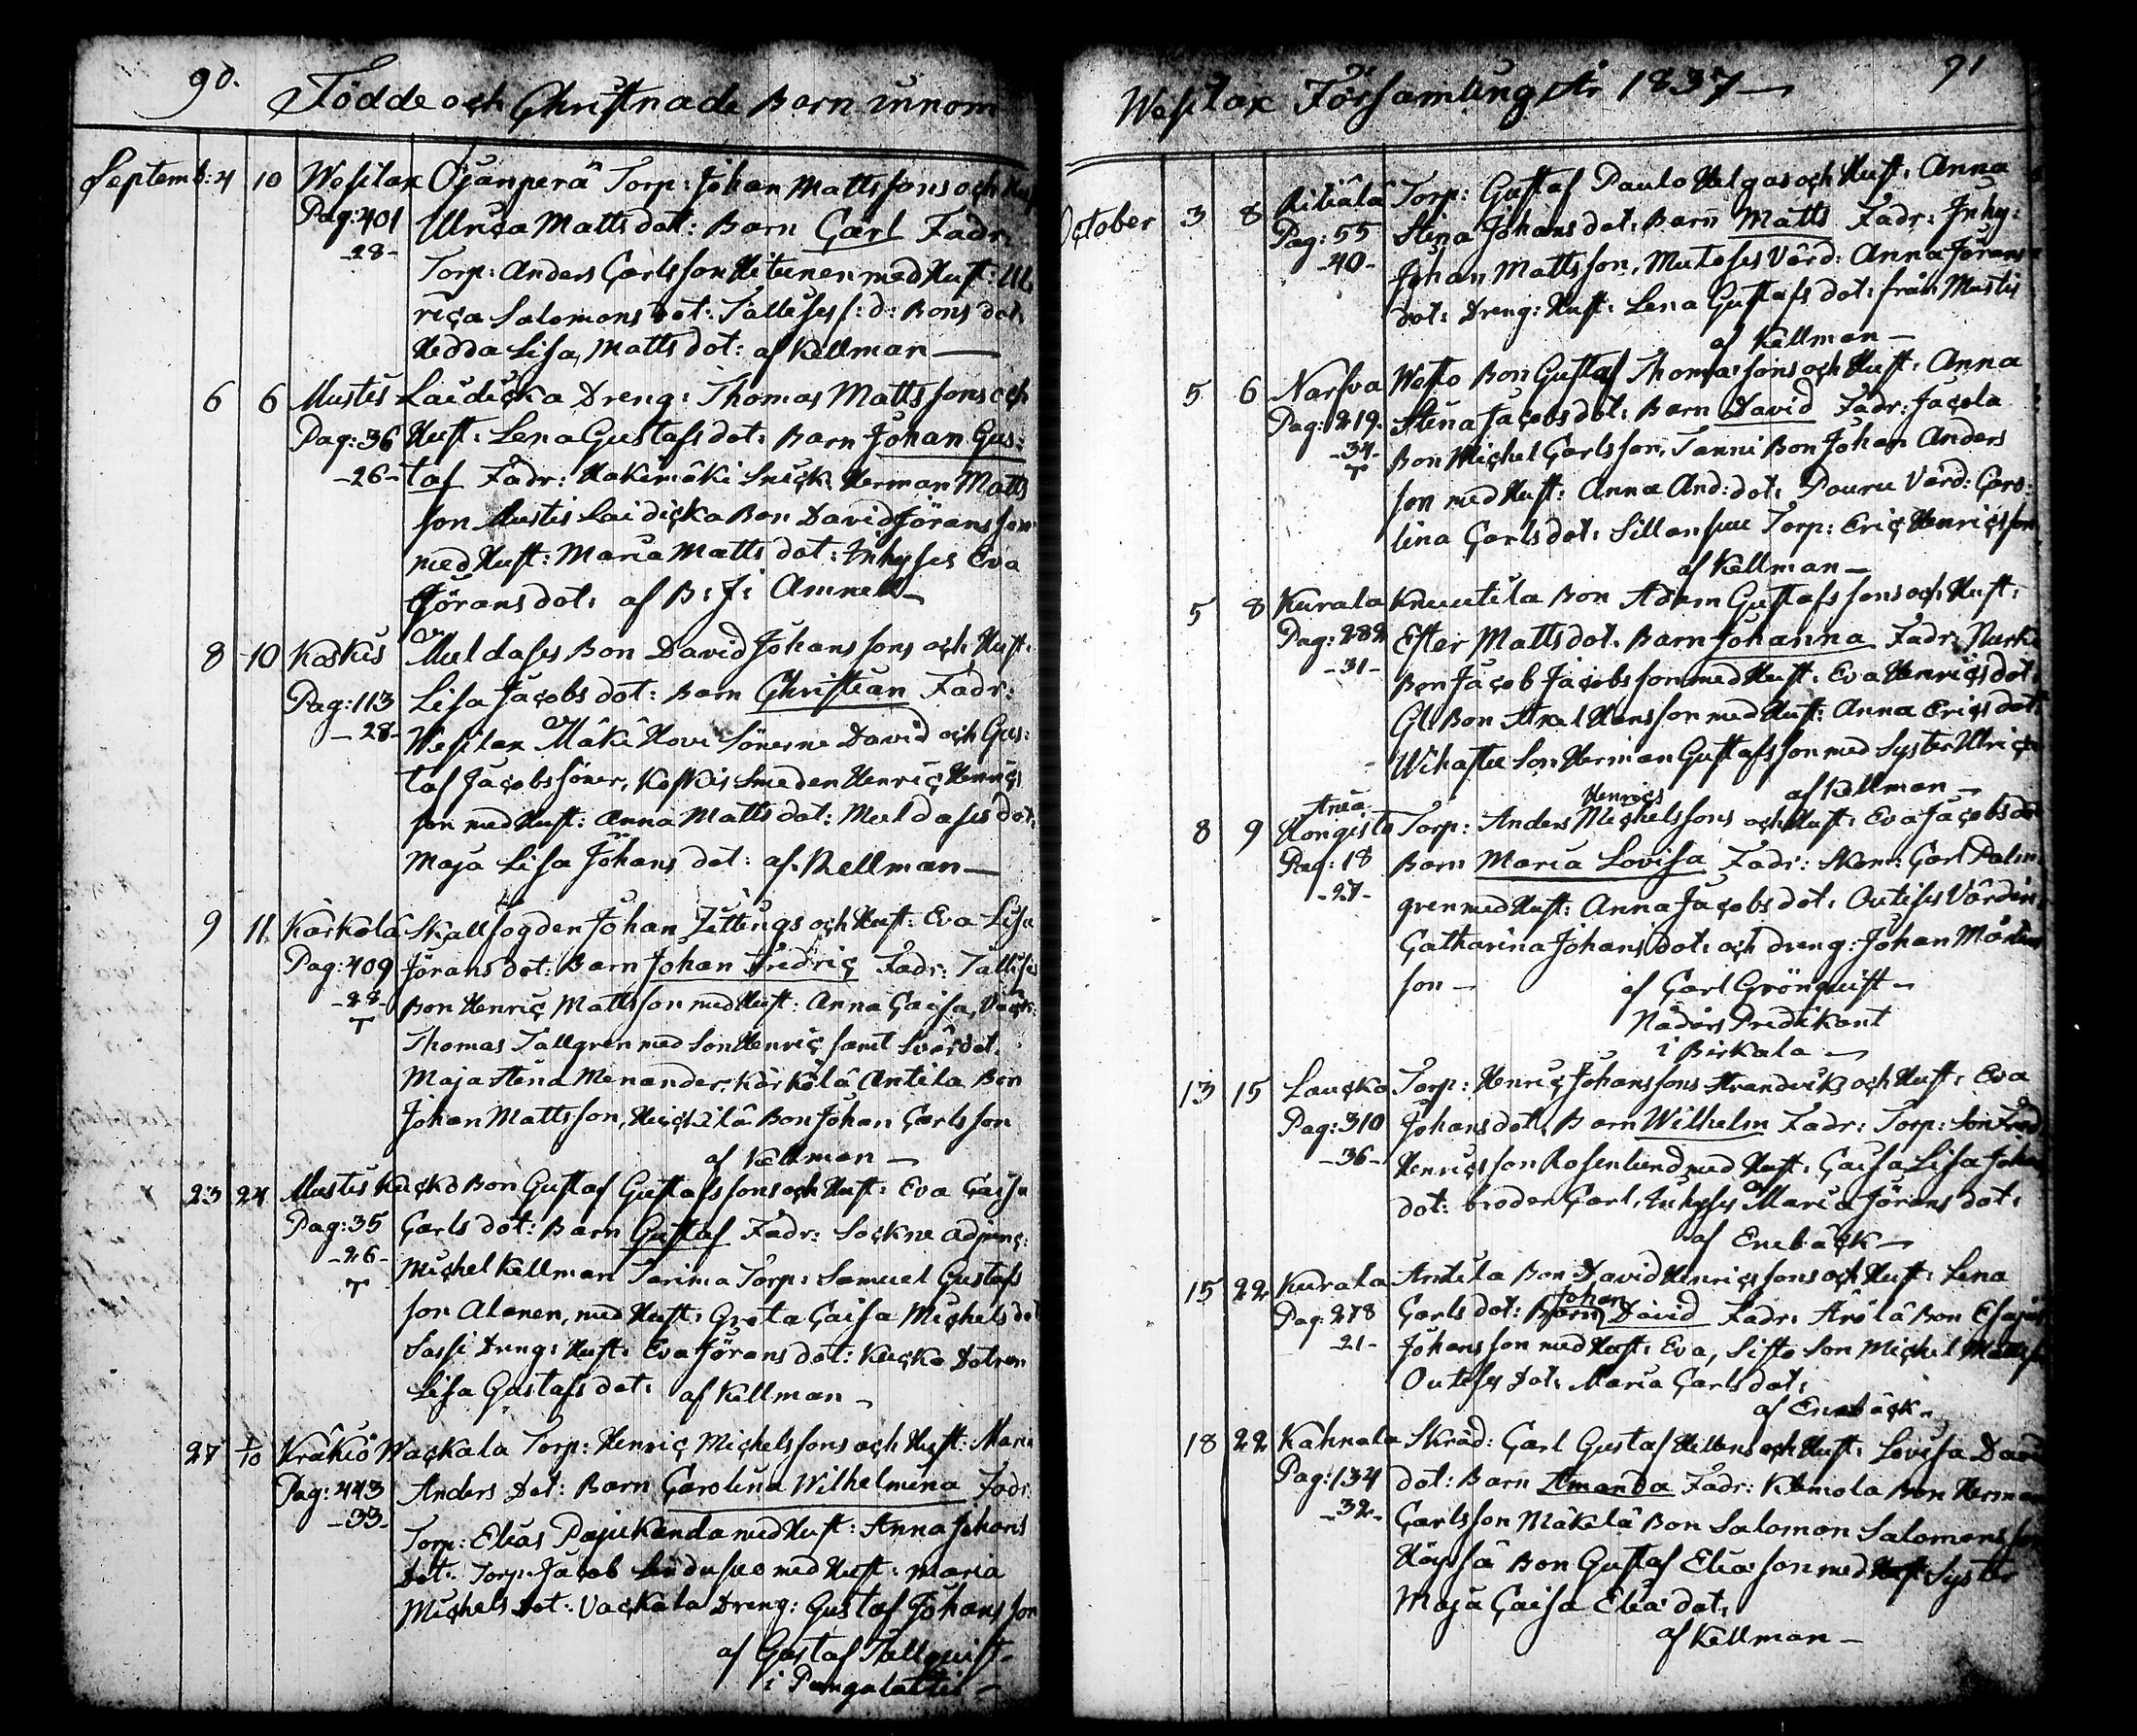 90.
Födde och Christnade Barn innom
Septemb: 4 10 Wesilax Ojanperä Torp: Johan Mattssons och Hust
Pag: 401 Ulrica Matts dot: Barn Carl Fadr:
-28- Torp: Anders Carlsson Hitunen med Hust: Ul
rica Salomons dot: Talleses s: d: Bons dot:
Hedda Lisa Matts dot: af Källman —
6 6 Mustis Laidicka Dreng: Thomas Mattssons och
Pag: 36 Hust: Lena Gustafs dot: Barn Johan Gus:
-26- taf Fadr: Hakimäki Snick: Herman Matts
son Mustis Laidicka Bon David Jöransson
med Hust: Maria Matts dot: Inhyses Eva
Jörans dot: af B: J: Amnell
8 10 Koskis Muldases Bon David Johanssons och Hust:
Pag: 113 Lisa Jacobs dot: Barn Christian Fadr:
-28- Wesilax Mäki Hovi Sönerne David och Gus:
taf Jacobs söner, Koskis Smeden Henric Henrics
son med Hust: Anna Matts dot: Muldases dot:
Maja Lisa Johans dot: af Kellman —
9 11. Kärkölä Skallfogden Johan Zittings och Hust: Eva Lisa
Pag: 409 Jörans dot: Barn Johan Fredric Fadr: Talleses
-28- Bon Henric Mattsson med Hust: Anna Caisa,
T Thomas Tallgren med Son Henric samt Svärdot:
Maja Stena Menander, Kärkölä Antila Bon
Johan Mattsson, Heickilä Bon Johan Carlsson
af Källman —
23 24 Mustis Kucko Bon Gustaf Gustafssons och Hust: Eva Caisa
Pag: 35 Carls dot: Barn Gustaf Fadr: Sockne adjunc:
-26- Michel Källman Tarima Torp: Samuel Gustafs
T son Alanen, med Hust: Greta Caisa Michels dot
Sassi Dreng: Hust: Eva Jörans dot: Kucko Dotren
Lisa Gustafs dot: af Kellman —
27 1/10 Kräkiö Wackala Torp: Henric Michelssons och Hust: Maria
Pag: 443 Anders Dot: Barn Carolina Wilhelmina Fadr:
-33- Torp: Elias Pajukanda med Hust: Anna Johans
Dot: Torp: Jacob med Hust: Maria
Michels Dot: Vackala Dreng: Gustaf Johansson
af Gustaf Tallquist
i Pungalaitis —
91
Wesilax Församling År 1837 —
October 3 8 Ritiälä Torp: Gustaf Paulo Helgas och Hust: Anna
Pag: 55 Stina Johans dot: Barn Matts Fadr: Inhy:
-40- Johan Mattsson, Mutoses Värd: Anna Jörans
dot: Dreng: Hust: Lena Gustafs dot: från Mustis
af Källman —
5 6 Narfva Westo Bon Gustaf Thomassons och Hust: Anna
Pag: 219. Stina Jacobs dot: Barn David Fadr: Jacola
-34- Bon Michel Carlsson, Tanni Bon Johan Anders
T son med Hust: Anna And: dot: Pouru Värd: Caro:
lina Carls dot: Sillansuu Torp: Eric Henricsson
af Källman —
5 8 Kurala Knuutila Bon Adam Gustafssons och Hust:
Pag: 282 Ester Matts dot: Barn Johanna Fadr: Nurki
-31- Bon Jacob Jacobsson med Hust: Eva Henrics dot:
Gl: Bon Axel Hansson med Hust: Anna Erics dot:
Wihattu Son Herman Gustafsson med Syster Ulrica
af Källman —
8 9 Ania Kongisto Torp: Anders Henrics Michelssons och Hust: Eva Jacobs dot
Pag: 18 Barn Maria Lovisa Fadr: Skom: Carl Palm
-27- gren med Hust: Anna Jacobs dot: Outises Värdin
Catharina Johans dot: och dreng: Johan Mårtens
son — af Carl Grönquist —
Nådårs Predikant
i Birkala —
13 15 Laucko Torp: Henric Johanssons Strandviks och Hust: Eva
Pag: 310 Johans dot: Barn Wilhelm Fadr: Torp: Son Fred
-36- Henricsson Rosenlund med Hust: Caisa Lisa Johans
dot: broder Carl, Inhyses Maria Jörans dot:
af Enebäck —
15 22 Kurala Antila Bon David Henricssons och Hust: Lena
Pag: 278 Carls dot: Barn Johan David Fadr: Arölä Bon Esajas
-21- Johansson med Hust: Eva, Sifto Son Michel Mattss
Outises Dot: Maria Carls dot:
af Enebäck —
18 22 Kahnala Skräd: Carl Gustaf Hellens och Hust: Lovisa David
Pag: 134 dot: Barn Amanda Fadr: Klemola Bon Herman
-32- Carlsson Mäkelä Bon Salomon Salomonsson
Höyssä Bon Gustaf Eliasson med Hust: Syster
Maja Caisa Elia dot:
af Källman —